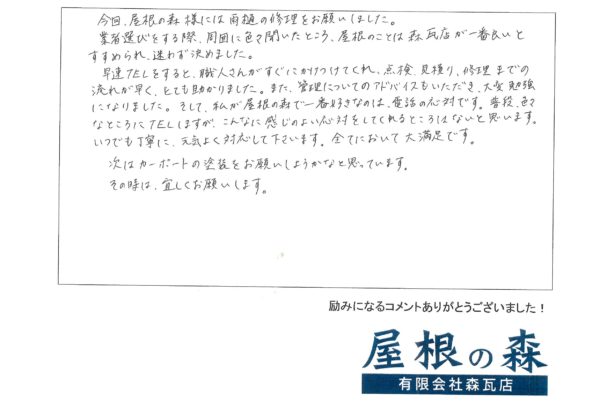 今回、屋根の森様には雨樋の修理をお願いしました。
業者選びをする際、周囲に色々聞いたところ、屋根のことは森瓦店が一番良いと
すすめられ、迷わず決めました。
早速TELをすると、職人さんがすぐにかけつけてくれ、点検、見積り、修理までの
流れが早く、とても助かりました。また、管理についてのアドバイスもいただき、大変勉強
になりました。そして、私が屋根の森で一番好きなのは、電話の応対です。普段、色々
なところにTELしますが、こんなに感じのよい応対をしてくれるところはないと思います。
いつでも丁寧に、元気よく対応して下さいます。全てにおいて大満足です。
次はカーポートの塗装をお願いしようかなと思っています。
その時は、宜しくお願いします。
励みになるコメントありがとうございました！
屋根の森
有限会社森瓦店